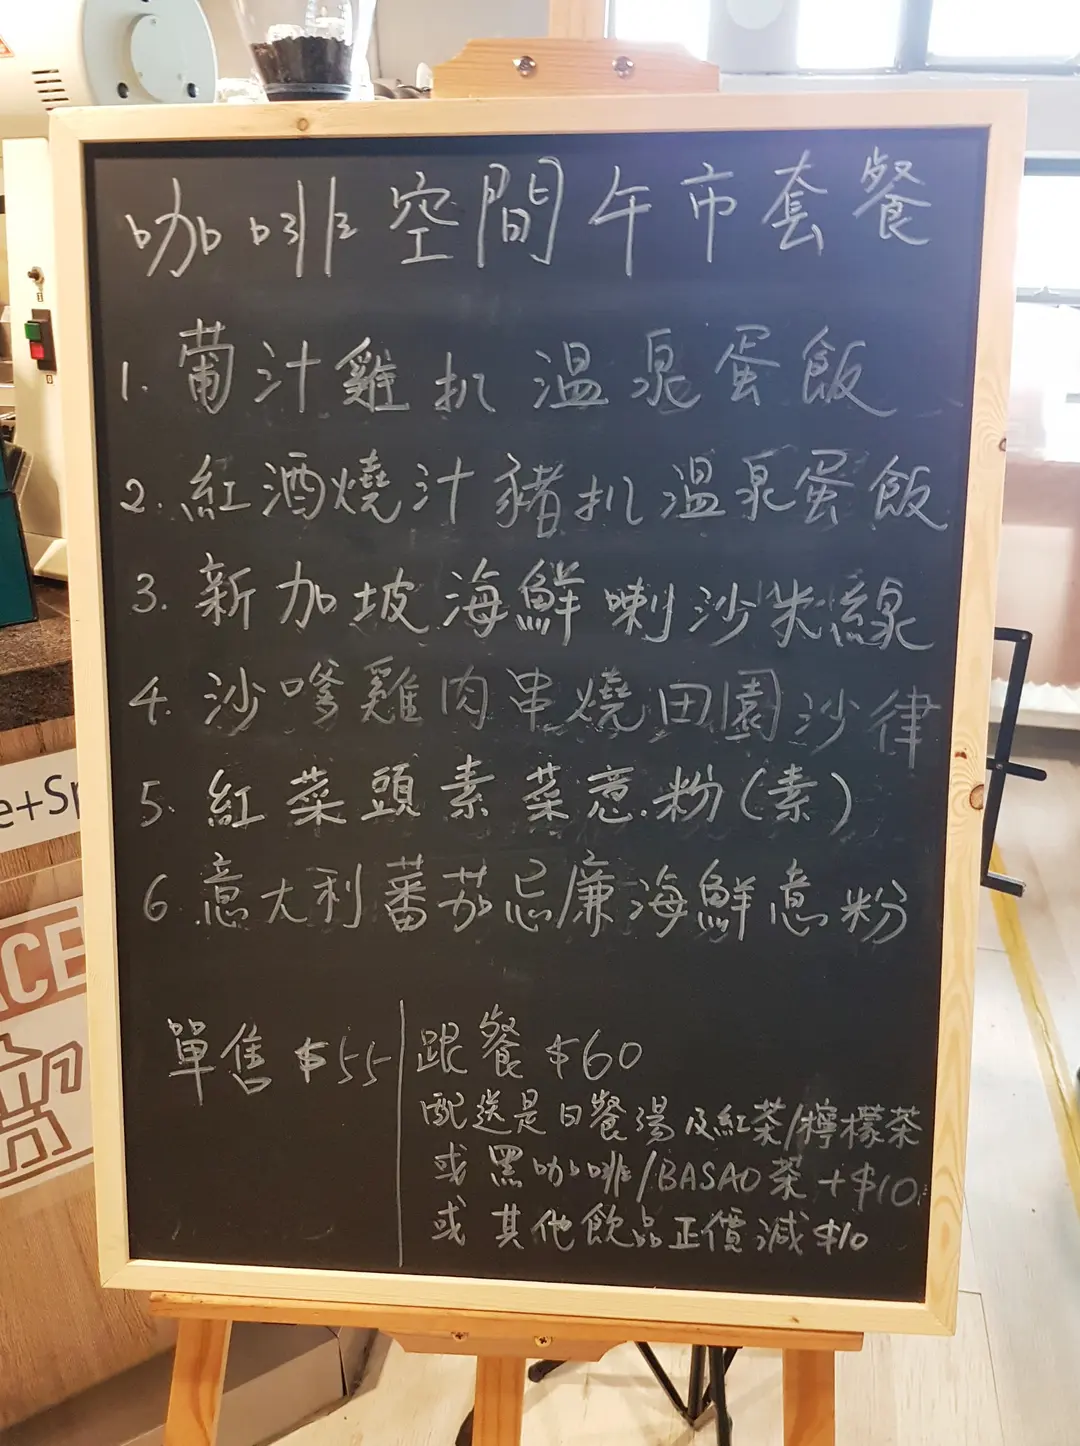 咖啡空間午市套餐
1. 葡汁雞扒溫泉蛋飯
2. 紅酒燒汁豬扒溫泉蛋飯
3. 新加坡海鮮喇沙米線
4. 沙嗲雞肉串燒田園沙律
5. 紅菜頭素菜意粉(素)
6. 意大利蕃茄忌廉海鮮意粉
單售 $55
跟餐 $60
配送是日餐湯及紅茶/檸檬茶
或黑咖啡/BASAO茶+$10
或其他飲品正價減$10
e+Sp
ACE